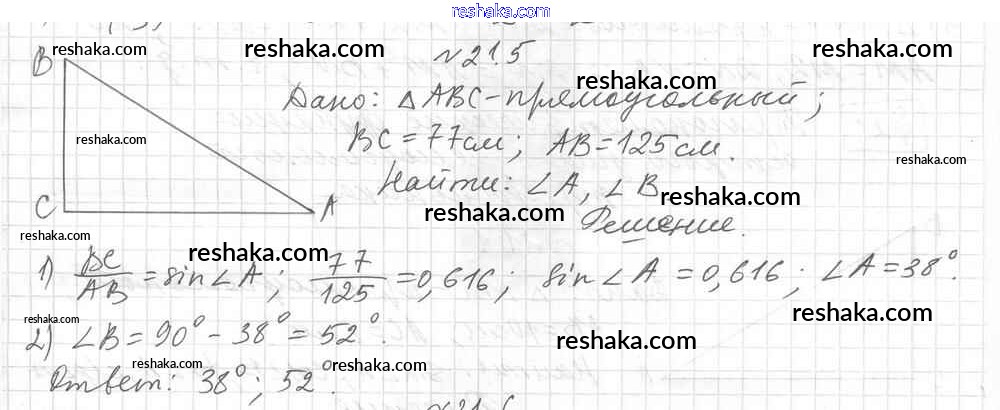 reshaka.com
№ 21.5
reshaka.com reshaka.com reshaka.com
B
reshaka.com
Дано: △ABC – прямоугольный;
reshaka.com
BC = 77 см; AB = 125 см.
reshaka.com
Найти: ∠A, ∠B
reshaka.com
C A
reshaka.com
Решение.
reshaka.com
reshaka.com
1) BC/AB = sin∠A; 77/125 = 0,616; sin∠A = 0,616; ∠A = 38°.
reshaka.com reshaka.com
2) ∠B = 90° – 38° = 52°.
reshaka.com
reshaka.com reshaka.com
Ответ: 38°; 52°.